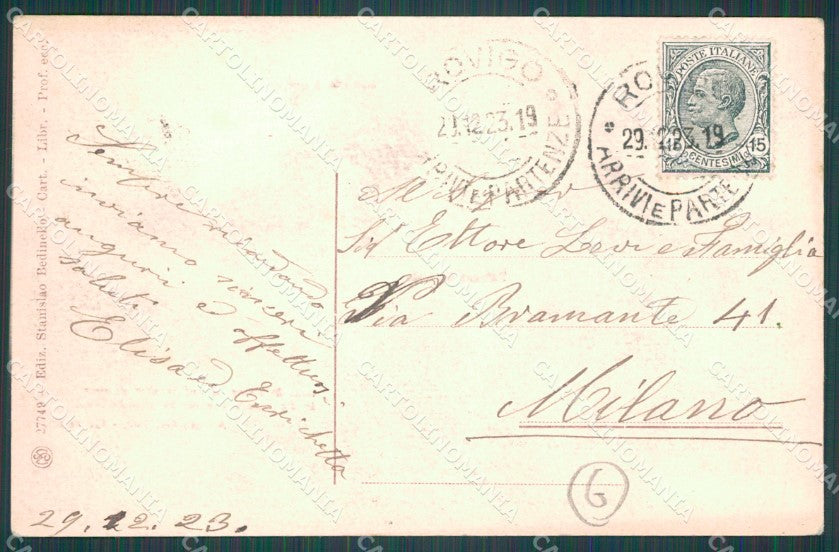 27749 Ediz. Stanislao Bedinello Cart. - Libr. - Prof. ed
Sempre ricordando
inviamo sinceri
auguri e affettuosi
saluti
Elisa ed Enrichetta
29. 12. 23.
ROVIGO
29.12.23.19
ARRIVI E PARTENZE
RO
29.12.23.19
ARRIVI E PARTE
POSTE ITALIANE
CENTESIMI 15
Al
Sig Ettore Levi e Famiglia
Via Bramante 41.
Milano
6
CARTOLINOMANIA